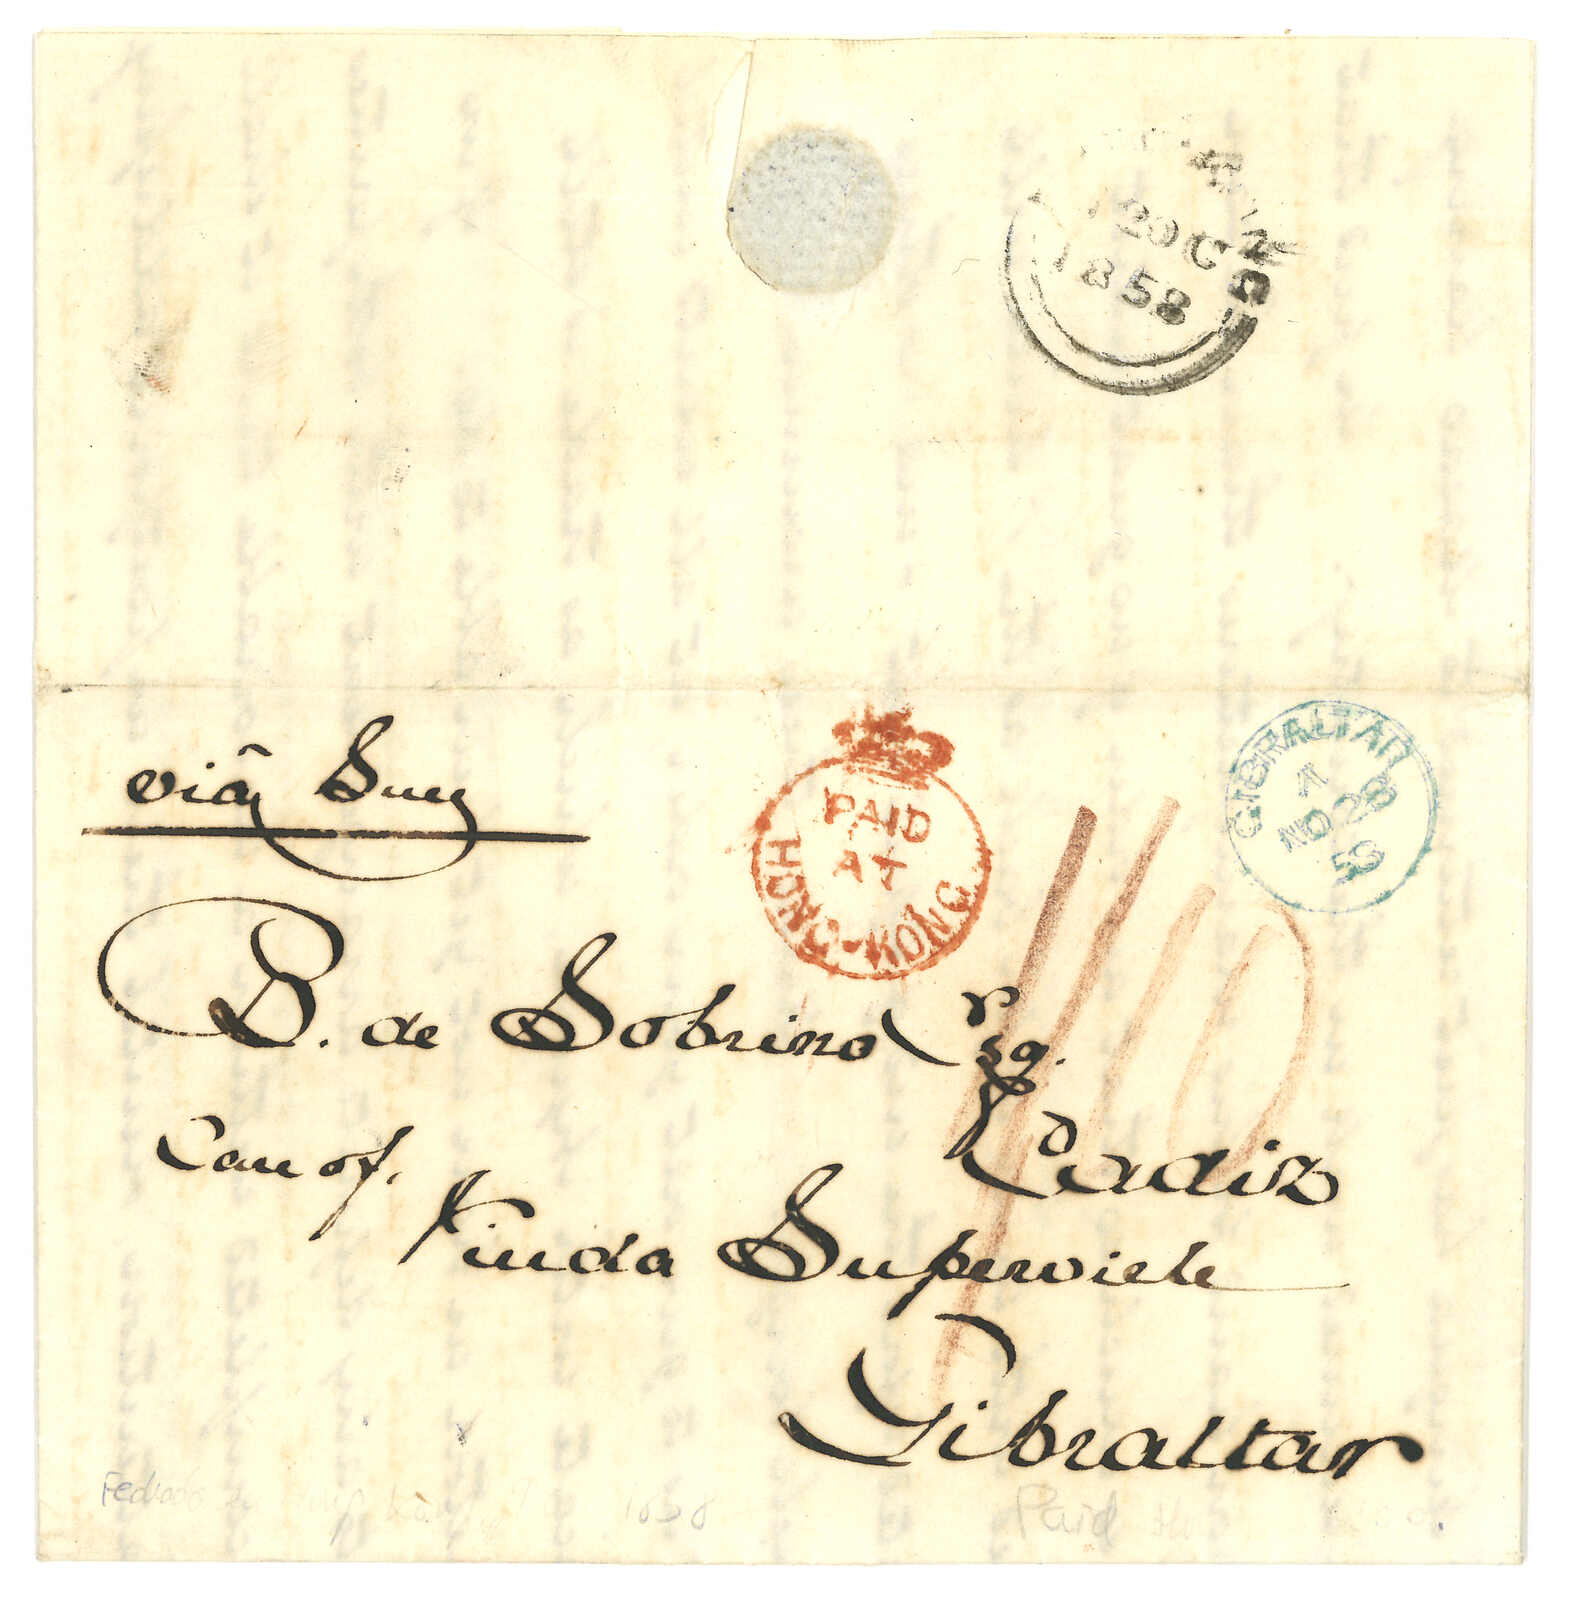 12 OC
1858
viâ Suez
PAID
AT
HONG-KONG
GIBRALTAR
A
NO 28
58
B. de Sobrino Esq.
Cadiz
Care of.
Viuda Superviele
Gibraltar
1858
Paid